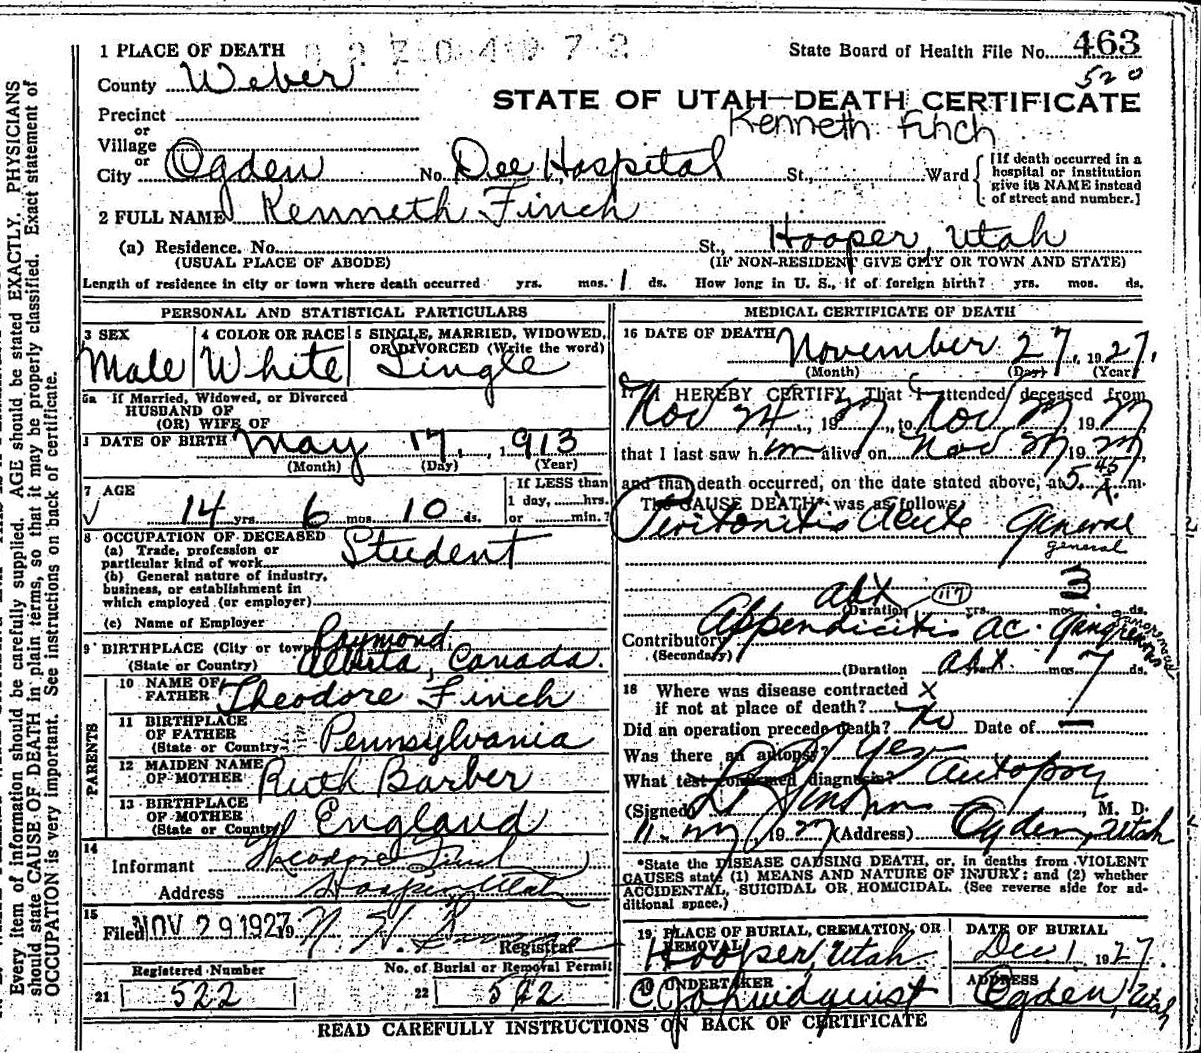 1 PLACE OF DEATH
State Board of Health File No. 463
County Weber
520
STATE OF UTAH—DEATH CERTIFICATE
Precinct
Kenneth Finch
or
Village
or
City Ogden No. Dee Hospital St., Ward
[If death occurred in a
hospital or institution
give its NAME instead
of street and number.]
2 FULL NAME Kenneth Finch
(a) Residence. No. St., Hooper, Utah
(USUAL PLACE OF ABODE) (IF NON-RESIDENT GIVE CITY OR TOWN AND STATE)
Length of residence in city or town where death occurred yrs. mos. 1 ds. How long in U. S., if of foreign birth? yrs. mos. ds.
PERSONAL AND STATISTICAL PARTICULARS
3 SEX
Male
4 COLOR OR RACE
White
5 SINGLE, MARRIED, WIDOWED,
OR DIVORCED (Write the word)
Single
5a If Married, Widowed, or Divorced
HUSBAND OF
(OR) WIFE OF
DATE OF BIRTH May 17, 1913
(Month) (Day) (Year)
7 AGE
14 yrs. 6 mos. 10 ds.
If LESS than
1 day, hrs.
or min.?
8 OCCUPATION OF DECEASED
(a) Trade, profession or
particular kind of work Student
(b) General nature of industry,
business, or establishment in
which employed (or employer)
(c) Name of Employer
9 BIRTHPLACE (City or town) Raymond
(State or Country) Alberta, Canada.
PARENTS
10 NAME OF
FATHER Theodore Finch
11 BIRTHPLACE
OF FATHER
(State or Country) Pennsylvania
12 MAIDEN NAME
OF MOTHER Ruth Barber
13 BIRTHPLACE
OF MOTHER
(State or Country) England
14
Informant Theodore Finch
Address Hooper Utah
15
Filed NOV 29 1927 19
Registrar
Registered Number
21 522
No. of Burial or Removal Permit
22 542
MEDICAL CERTIFICATE OF DEATH
16 DATE OF DEATH November 27, 1927.
(Month) (Day) (Year)
17 I HEREBY CERTIFY That I attended deceased from
Nov 24, 1927, to Nov 27 1927
that I last saw him alive on Nov 27 1927,
and that death occurred, on the date stated above, at 5.45 A. m.
The CAUSE DEATH* was as follows:
Peritonitis Acute General
general
abx 117 3
(Duration yrs. mos. ds.
Contributory Appendicitis ac. Gangrenous
gangrenous
(Secondary)
(Duration abx. mos. 7 ds.
18 Where was disease contracted
if not at place of death? X
Did an operation precede death? No Date of —
Was there an autopsy? Yes
What test confirmed diagnosis? Autopsy
(Signed) M. D.
11-27 1927 (Address) Ogden, Utah
*State the DISEASE CAUSING DEATH, or, in deaths from VIOLENT
CAUSES state (1) MEANS AND NATURE OF INJURY; and (2) whether
ACCIDENTAL, SUICIDAL OR HOMICIDAL. (See reverse side for ad-
ditional space.)
19 PLACE OF BURIAL, CREMATION, OR
REMOVAL
Hooper, Utah
DATE OF BURIAL
Dec 1 1927.
20 UNDERTAKER
ADDRESS
Ogden, Utah
READ CAREFULLY INSTRUCTIONS ON BACK OF CERTIFICATE
Every item of information should be carefully supplied. AGE should be stated EXACTLY. PHYSICIANS
should state CAUSE OF DEATH in plain terms, so that it may be properly classified. Exact statement of
OCCUPATION is very important. See instructions on back of certificate.